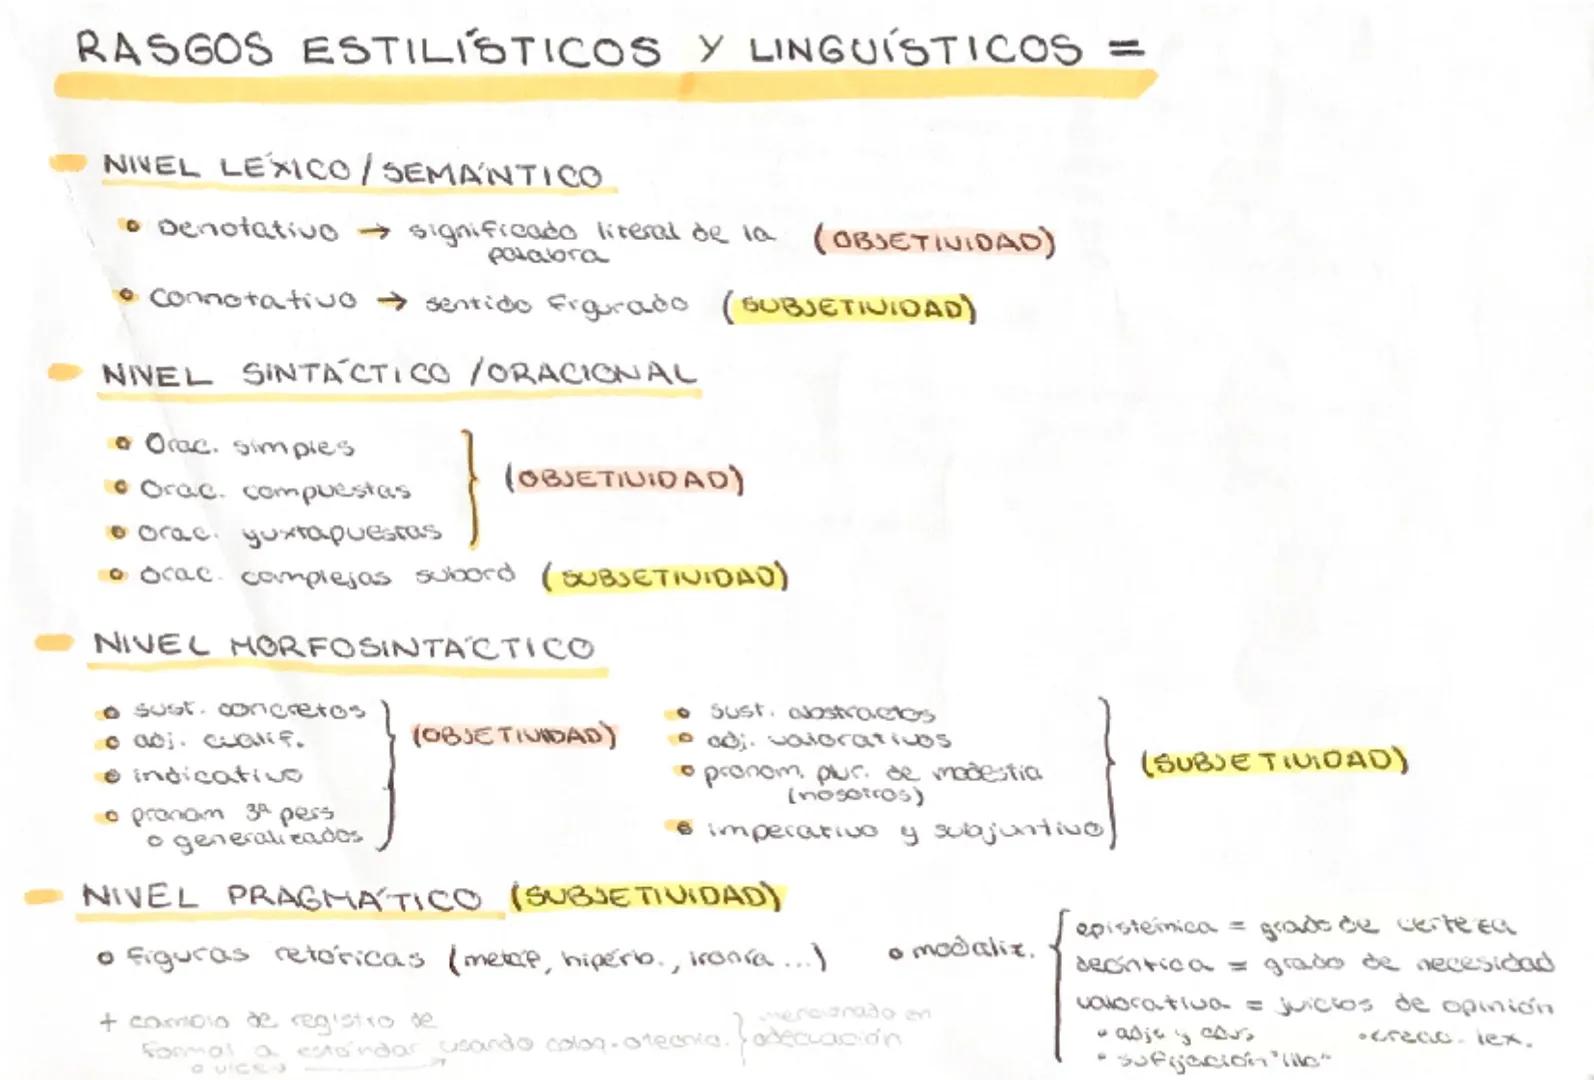 RASGOS ESTILÍSTICOS Y LINGUÍSTICOS =
NIVEL LÉXICO / SEMÁNTICO
Denotativo → significado literal de la (OBJETIVIDAD)
palabra
Connotativo → sentido figurado (SUBJETIVIDAD)
NIVEL SINTÁCTICO / ORACIONAL
Orac. simples
Orac. compuestas (OBJETIVIDAD)
Orac. yuxtapuestas
Orac. complejas subord (SUBJETIVIDAD)
NIVEL MORFOSINTÁCTICO
sust. concretos
adj. cualif. (OBJETIVIDAD)
indicativo
pronom 3ª pers
o generalizados
sust. abstractos
adj. valorativos
pronom. plur. de modestia (SUBJETIVIDAD)
(nosotros)
imperativo y subjuntivo
NIVEL PRAGMÁTICO (SUBJETIVIDAD)
figuras retóricas (metáf, hipérb., ironía ...)
modaliz.
epistémica = grado de certeza
deóntica = grado de necesidad
valorativa = juicios de opinión
adjs y advs
creac. lex.
sufijación "illo"
+ cambio de registro de
formal a estándar usando coloq. o tecnic.
o vicev
mencionado en
adecuación